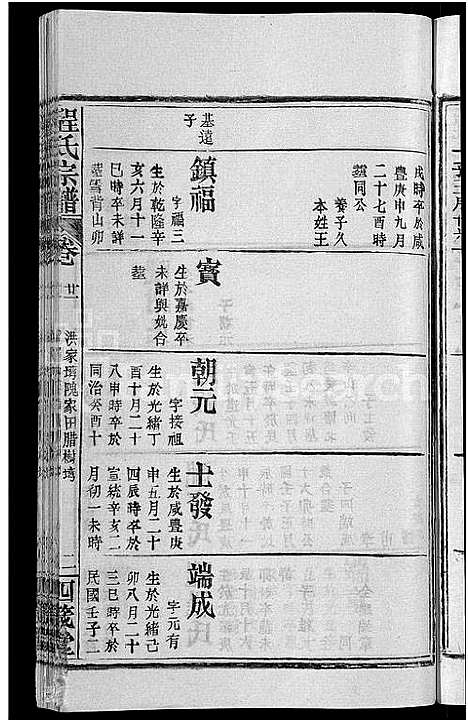 程氏宗譜
卷
廿一
洪家塆隗家田腊樹塆
戌時卒於咸
豐庚申九月
二十七酉時
葬同公
養子久
本姓王
基遠
子
鎮福
字福三
生於乾隆辛
亥六月十一
巳時卒未詳
葬雪背山卯
寳
生於嘉慶卒
未詳與姚合
葬
朝元
字接祖
生於光緒丁
酉十月二十
八申時卒於
同治癸酉十
士發
生於咸豐庚
申五月二十
四辰時卒於
宣統辛亥二
月初一未時
端成
字元有
生於光緒己
卯八月二十
三巳時卒於
民國壬子二